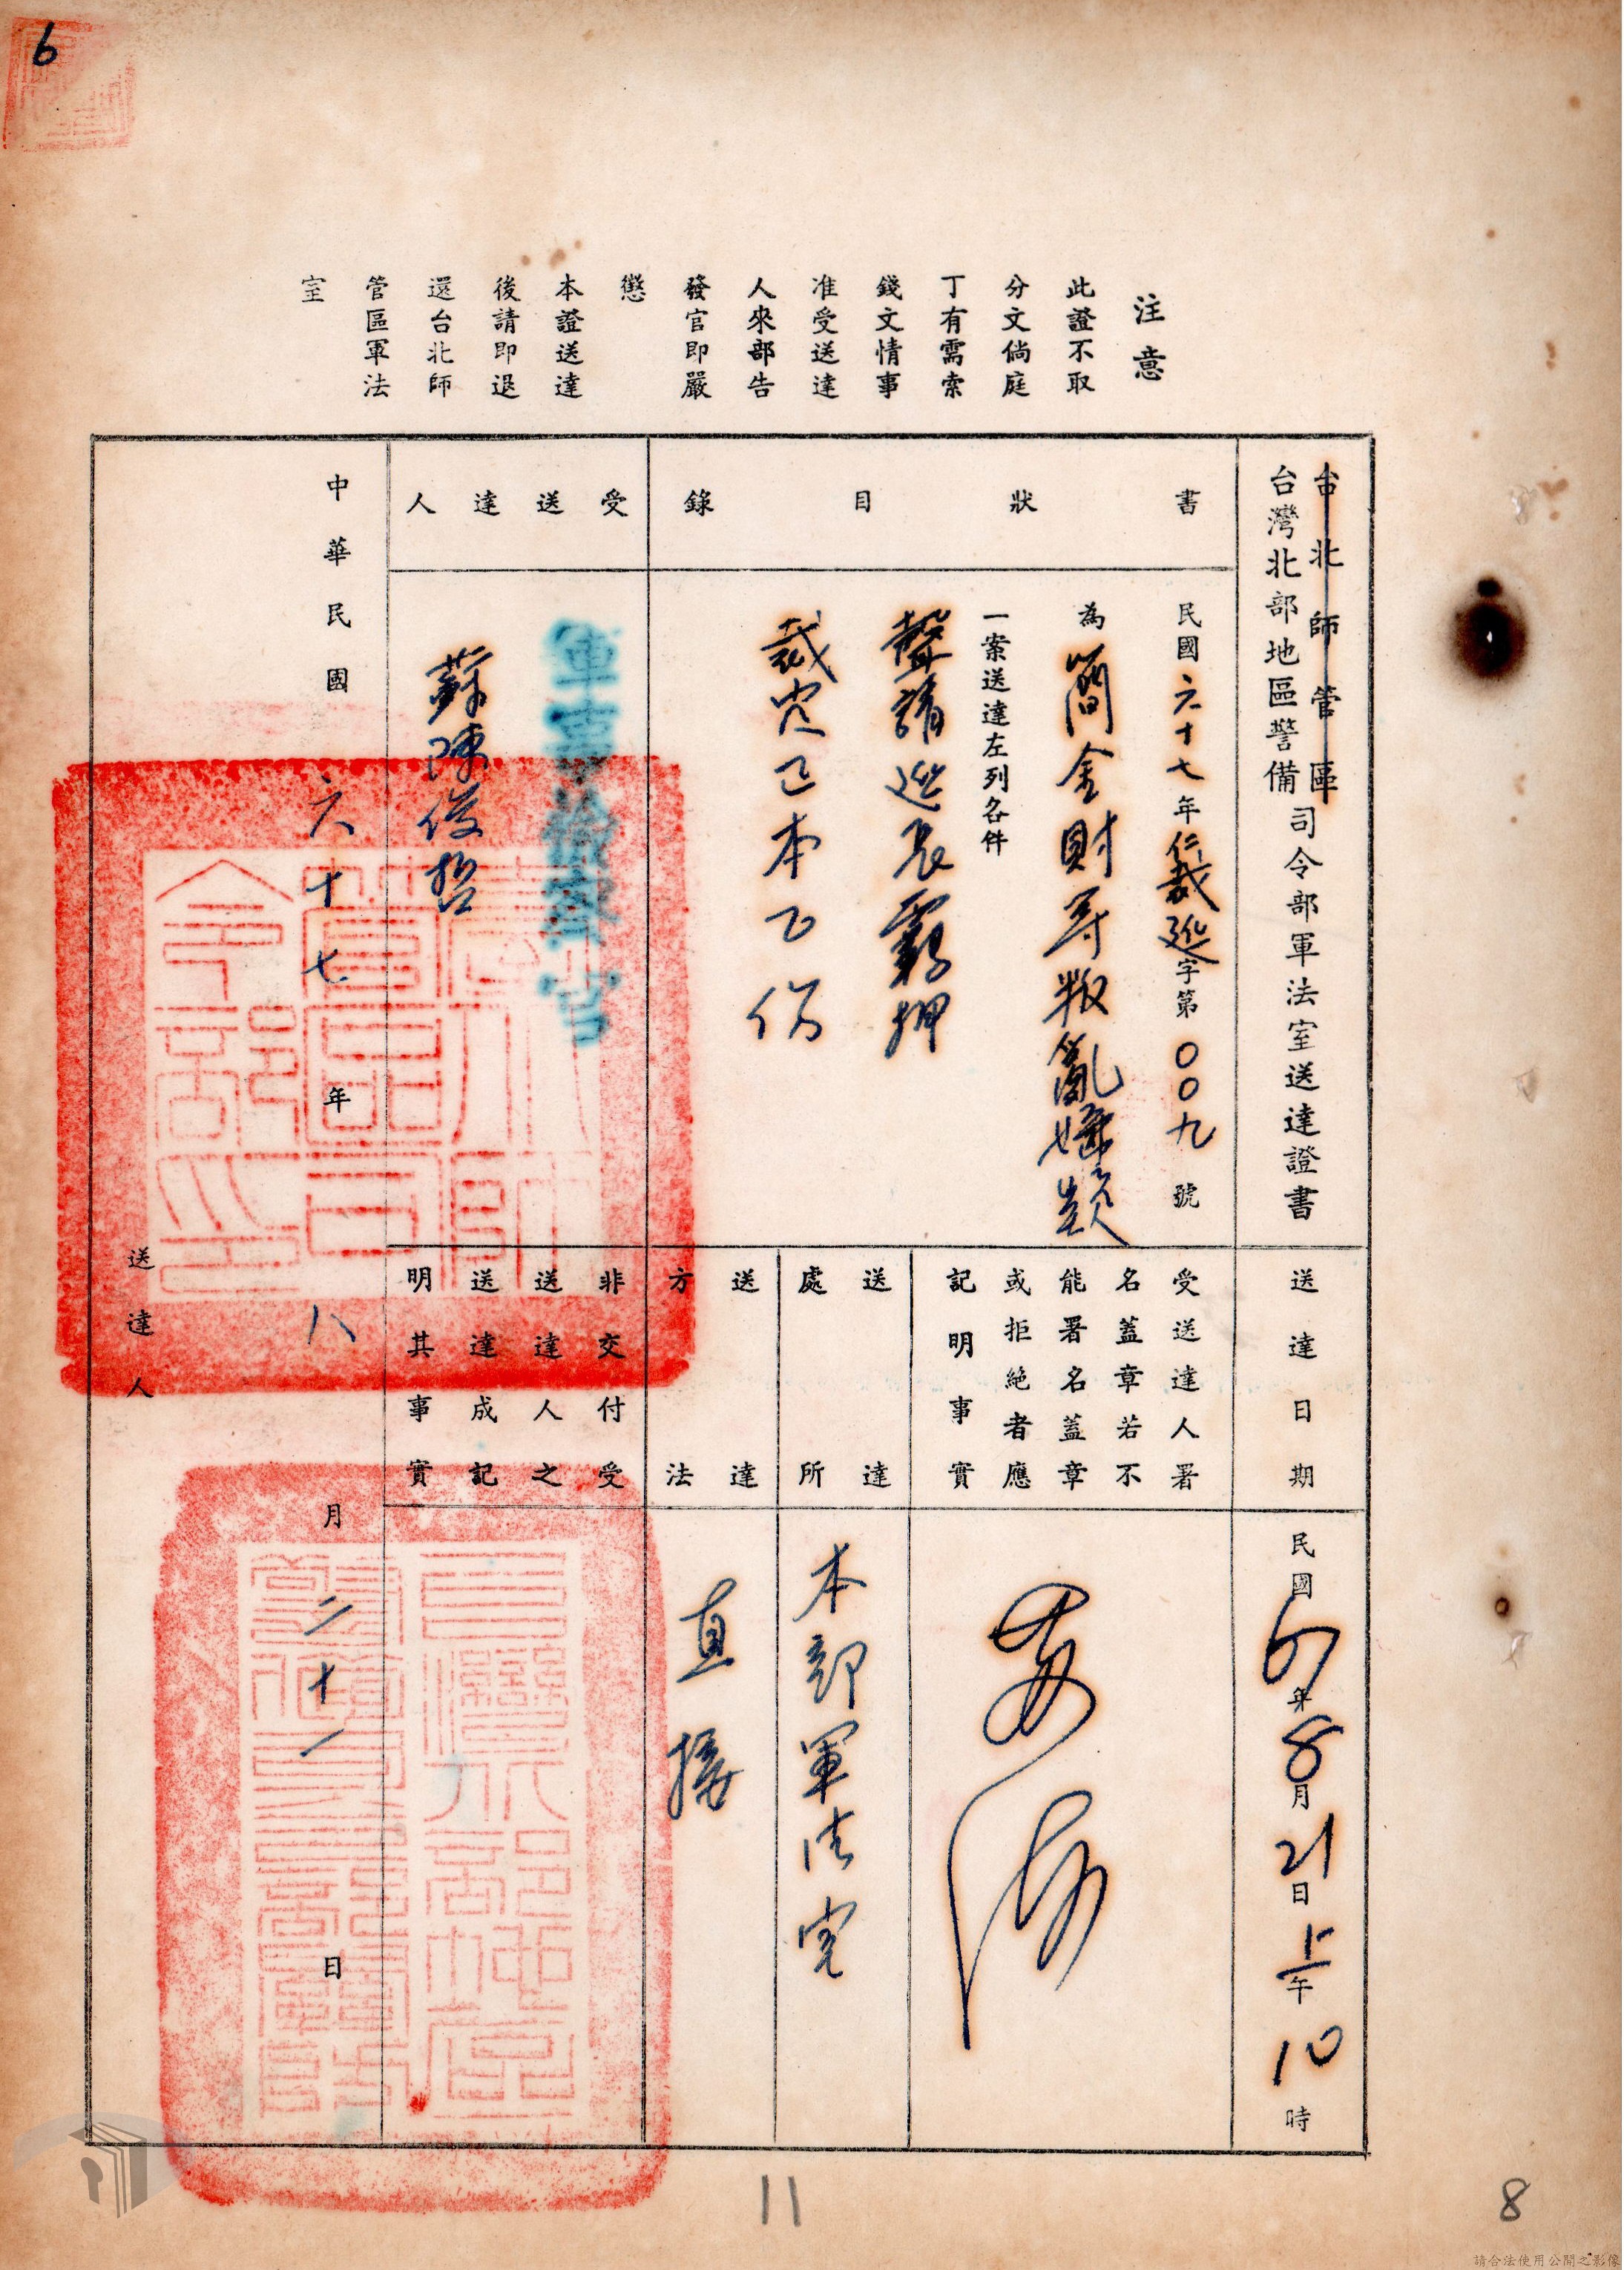 6
注意
此證不取
分文倘庭
丁有需索
錢文情事
准受送達
人來部告
發官即嚴
懲
本證送達
後請即退
還台北師
管區軍法
室
台北師管區
台灣北部地區警備
司令部軍法室送達證書
書狀目錄
民國六十七年仁裁巡字第００九號
為簡金財等叛亂嫌疑
一案送達左列各件
聲請延長羈押
裁定正本乙份
受送達人
軍事檢察官
蘇陳俊哲
中華民國六十七年八月二十一日
送達人
送達日期
民國67年8月21日上午10時
受送達人署
名蓋章若不
能署名蓋章
或拒絕者應
記明事實
送達
處所
本部軍法室
送達
方法
直接
非交付受
送達人之
送達成記
明其事實
台灣北部地區
警備司令部軍
11
8
請合法使用公開之影像